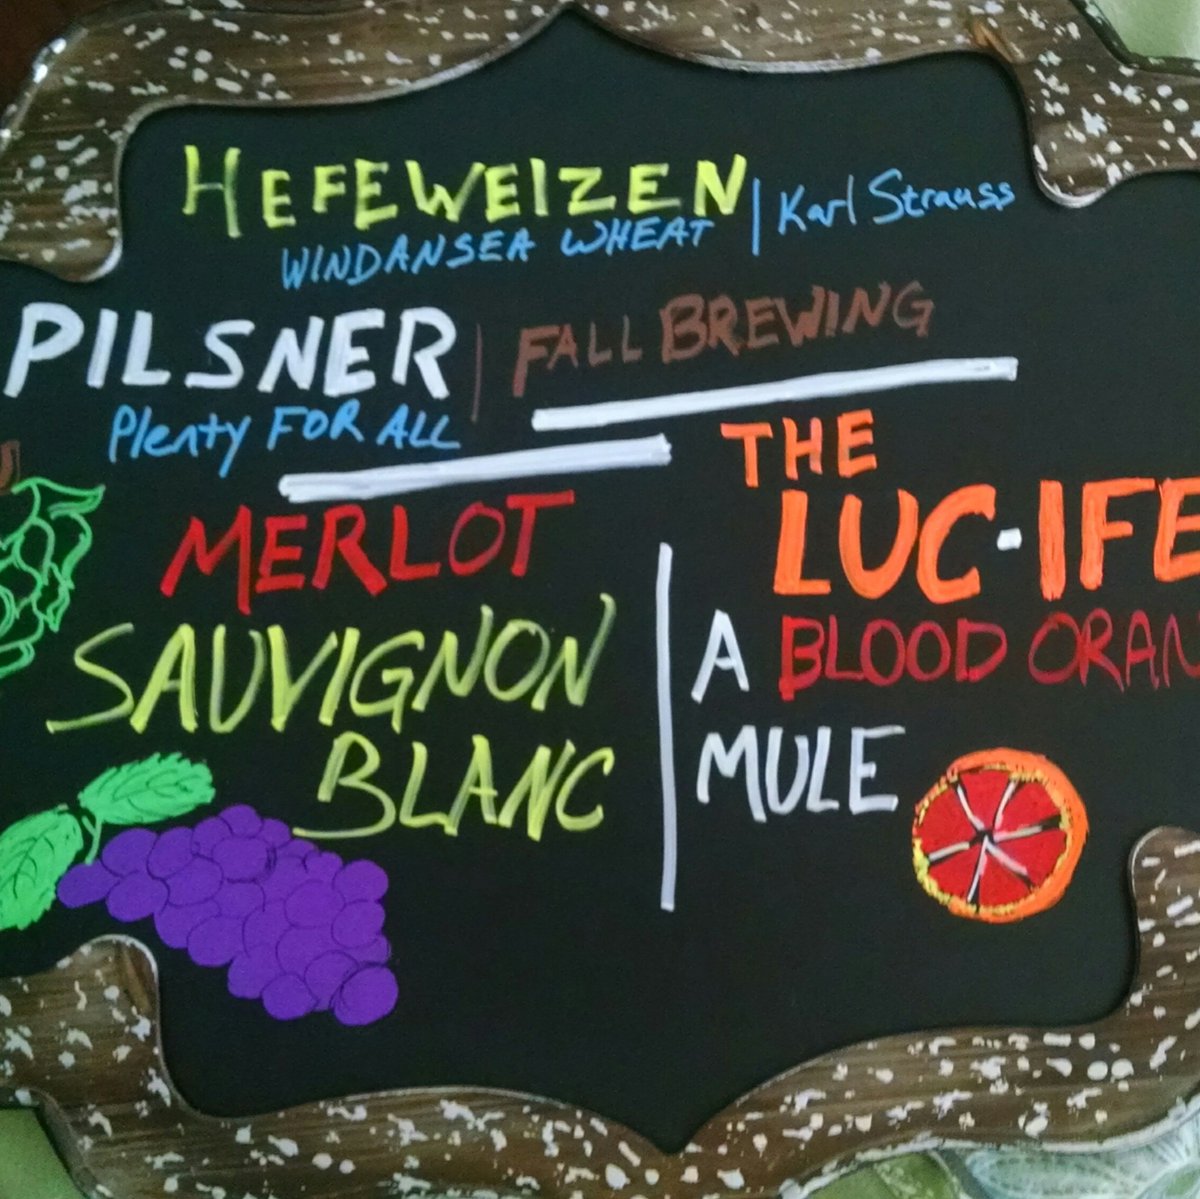 HEFEWEIZEN
WINDANSEA WHEAT | Karl Strauss
PILSNER | FALL BREWING
Plenty FOR ALL
MERLOT
SAUVIGNON
BLANC
THE
LUC-IFE
A BLOOD ORAN
MULE